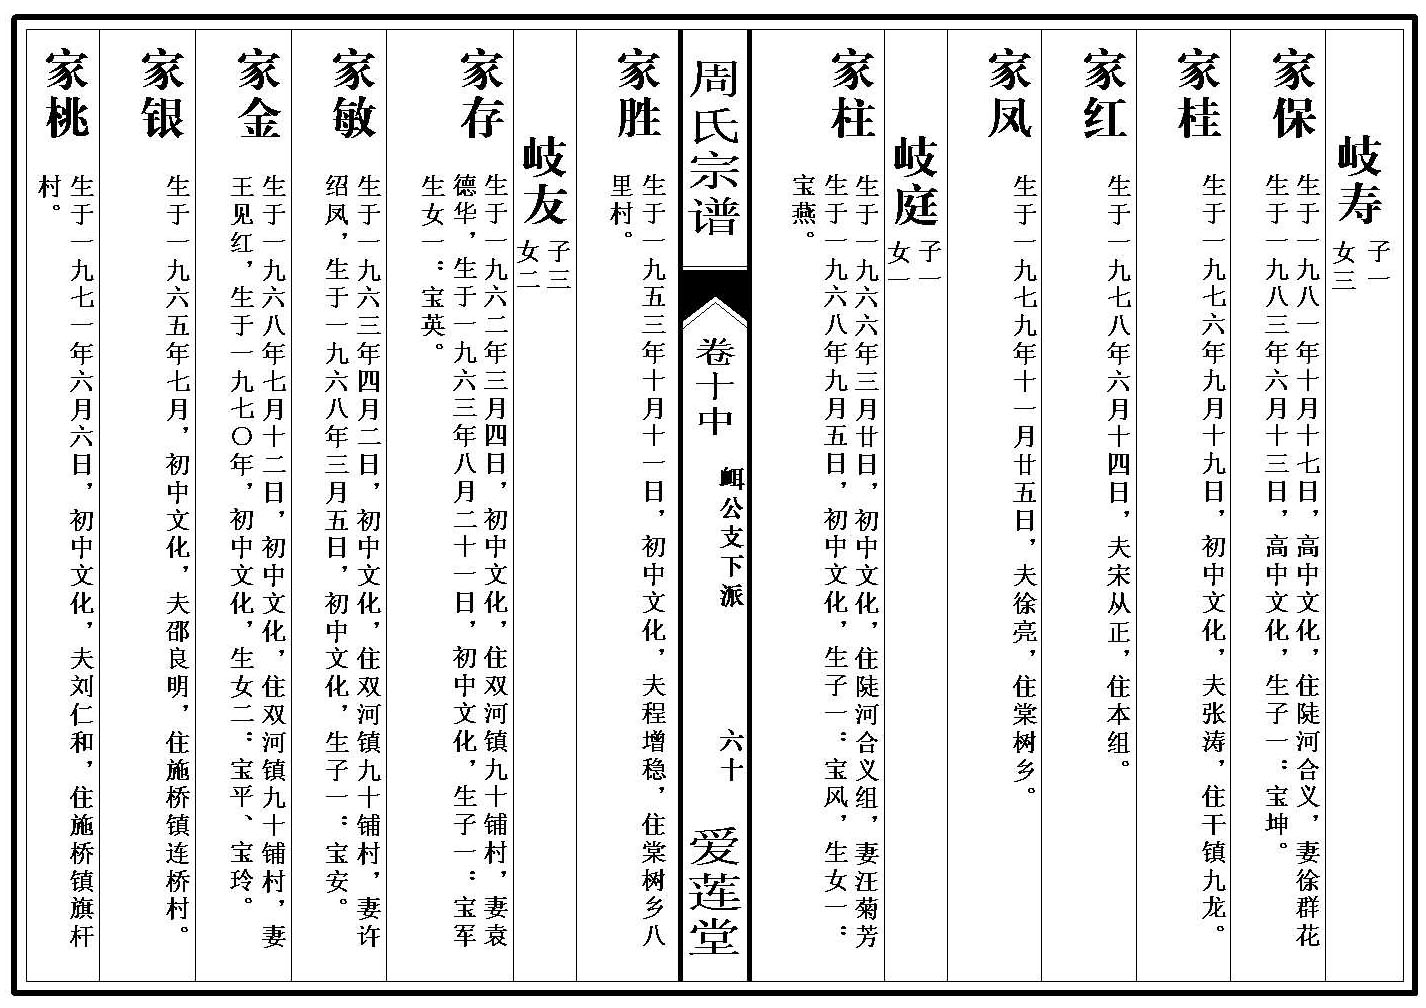 岐寿
子一
女三
家保
生于一九八一年十月十七日，高中文化，住陡河合义，妻徐群花
生于一九八三年六月十三日，高中文化，生子一：宝坤。
家桂
生于一九七六年九月十九日，初中文化，夫张涛，住干镇九龙。
家红
生于一九七八年六月十四日，夫宋从正，住本组。
家凤
生于一九七九年十一月廿五日，夫徐亮，住棠树乡。
岐庭
子一
女一
家柱
生于一九六六年三月廿日，初中文化，住陡河合义组，妻汪菊芳
生于一九六八年九月五日，初中文化，生子一：宝风，生女一：
宝燕。
周氏宗谱
卷十中
峏公支下派
六十
爱莲堂
家胜
生于一九五三年十月十一日，初中文化，夫程增稳，住棠树乡八
里村。
岐友
子三
女二
家存
生于一九六二年三月四日，初中文化，住双河镇九十铺村，妻袁
德华，生于一九六三年八月二十一日，初中文化，生子一：宝军
生女一：宝英。
家敏
生于一九六三年四月二日，初中文化，住双河镇九十铺村，妻许
绍凤，生于一九六八年三月五日，初中文化，生子一：宝安。
家金
生于一九六八年七月十二日，初中文化，住双河镇九十铺村，妻
王见红，生于一九七〇年，初中文化，生女二：宝平、宝玲。
家银
生于一九六五年七月，初中文化，夫邵良明，住施桥镇连桥村。
家桃
生于一九七一年六月六日，初中文化，夫刘仁和，住施桥镇旗杆
村。